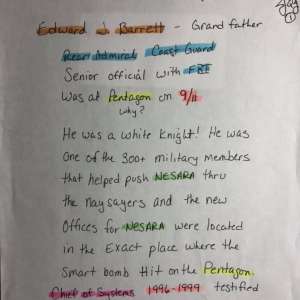 Edward J. Barrett - Grand father
Rear Admiral Coast Guard
Senior official with FBI
Was at Pentagon on 9/11
why?
He was a white knight! He was
one of the 300+ military members
that helped push NESARA thru
the naysayers and the new
Offices for NESARA were located
in the Exact place where the
Smart bomb Hit on the Pentagon.
Chief of Systems 1996-1999 testified